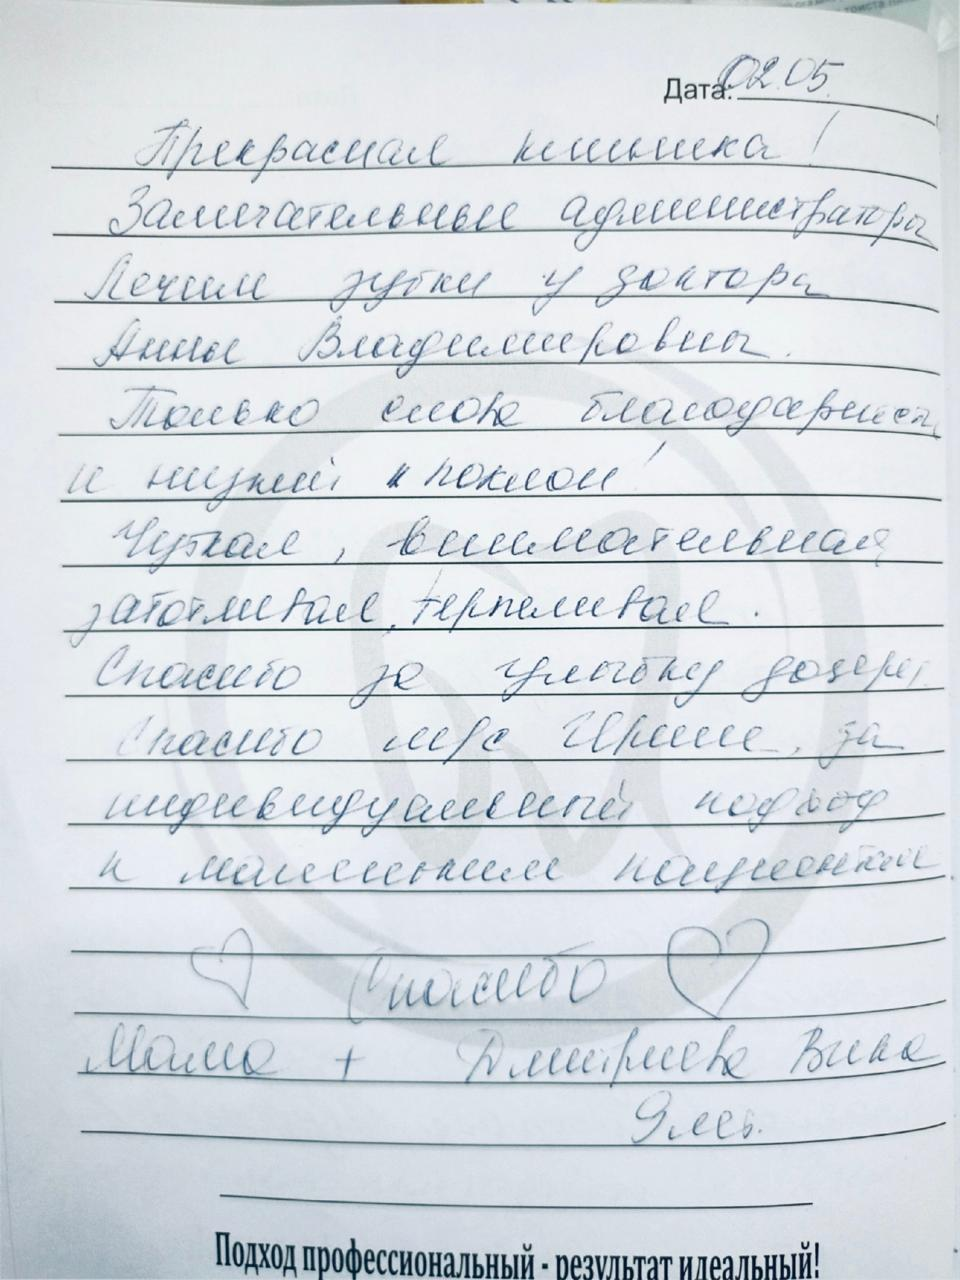 Дата: 02.05.
Прекрасная клиника!
Замечательные администраторы
Лечим зубки у доктора
Анны Владимировны.
Только слова благодарности
и низкий поклон!
Чуткая, внимательная
заботливая, терпеливая.
Спасибо за улыбку дочери.
Спасибо м/с Ирине, за
индивидуальный подход
к маленьким пациентам
Спасибо
Мама + Дмитриева Вика
9 лет.
Подход профессиональный - результат идеальный!